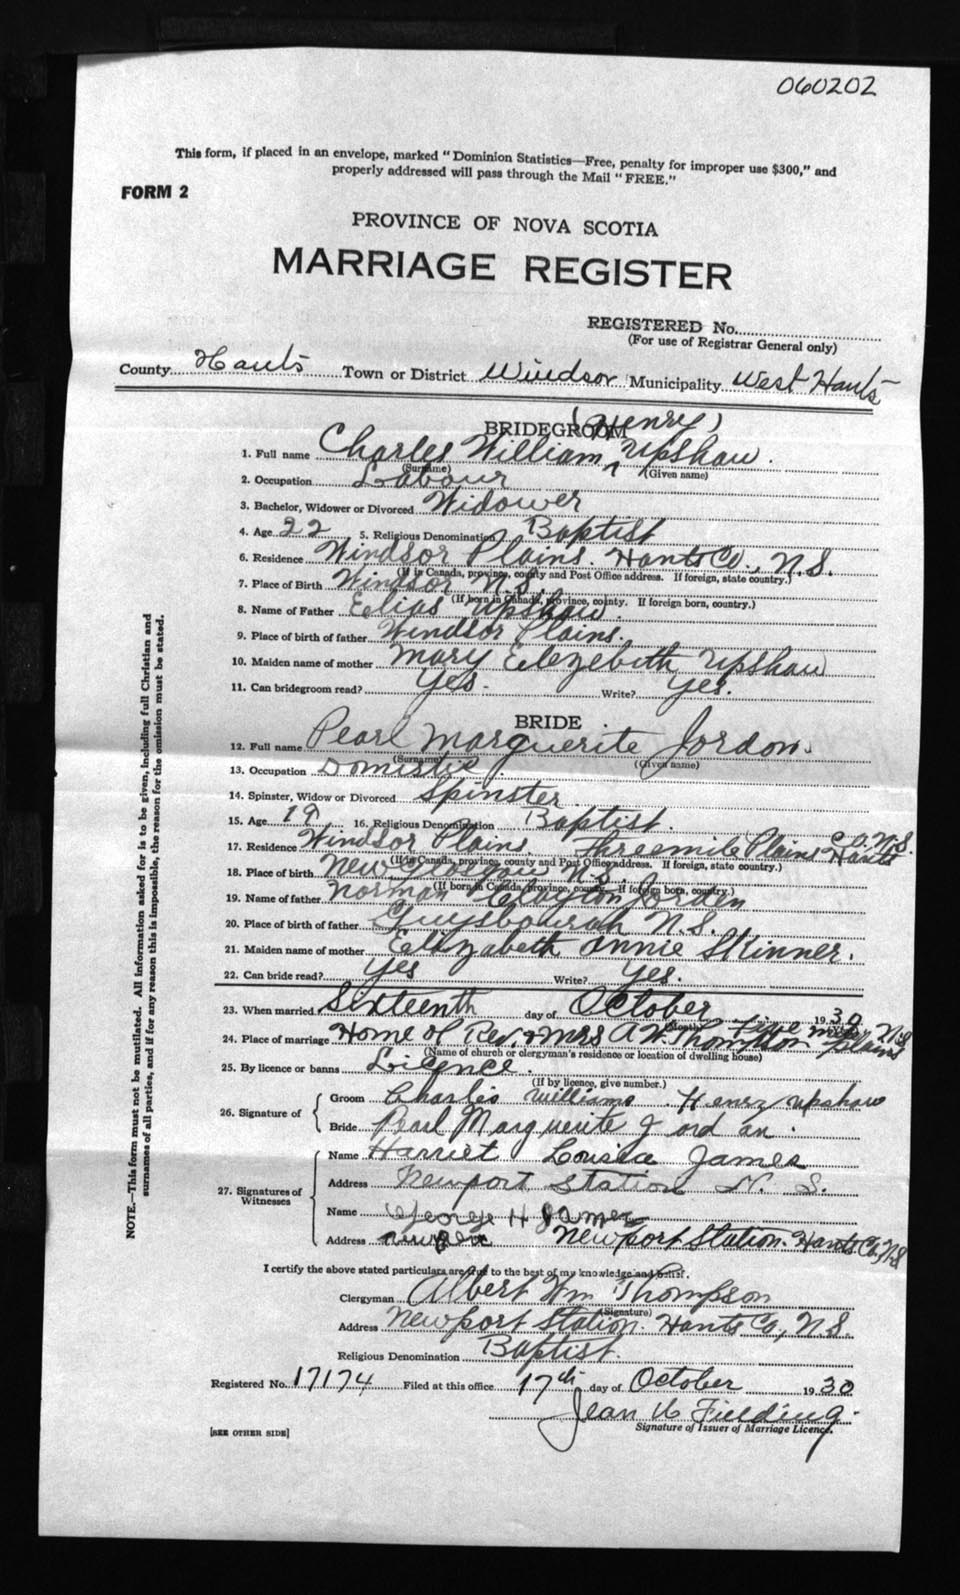 060202
This form, if placed in an envelope, marked "Dominion Statistics—Free, penalty for improper use $300," and
properly addressed will pass through the Mail "FREE."
FORM 2
PROVINCE OF NOVA SCOTIA
MARRIAGE REGISTER
REGISTERED No.
(For use of Registrar General only)
County Hants Town or District Windsor Municipality West Hants
BRIDEGROOM
(Henry)
1. Full name Charles William ^ Upshaw.
(Surname) (Given name)
2. Occupation Labour
3. Bachelor, Widower or Divorced Widower
4. Age 22 5. Religious Denomination Baptist
6. Residence Windsor Plains. Hants Co., N.S.
(If in Canada, province, county and Post Office address. If foreign, state country.)
7. Place of Birth Windsor N.S.
(If born in Canada, province, county. If foreign born, country.)
8. Name of Father Elias Upshaw.
9. Place of birth of father Windsor Plains.
10. Maiden name of mother Mary Elezebith Upshaw
11. Can bridegroom read? Yes. Write? Yes.
BRIDE
12. Full name Pearl Marguerite Jordon.
(Surname) (Given name)
13. Occupation Domistic.
14. Spinster, Widow or Divorced Spinster
15. Age 19 16. Religious Denomination Baptist.
17. Residence Windsor Plains Threemile Plains Hants Co. N.S.
(If in Canada, province, county and Post Office address. If foreign, state country.)
18. Place of birth New Glasgow N.S.
(If born in Canada, province, county. If foreign born, country.)
19. Name of father Norman Clayton Jorden
20. Place of birth of father Guysbourah N.S.
21. Maiden name of mother Elizabeth Annie Skinner.
22. Can bride read? Yes Write? Yes.
23. When married Sixteenth day of October 1930
(Month)
24. Place of marriage Home of Rev. & Mrs A.W. Thompson Five mile Plains N.S
(Name of church or clergyman's residence or location of dwelling house)
25. By licence or banns Licence.
(If by licence, give number.)
26. Signature of
Groom Charlie Williams Henry Upshaw
Bride Pearl Marguerite Jordan.
27. Signatures of Witnesses
Name Harriet Louisa James
Address Newport Station N. S.
Name George H James
Address Newport Station. Hants Co, N.S
I certify the above stated particulars are true to the best of my knowledge and belief.
Clergyman Albert Wm Thompson
(Signature)
Address Newport Station. Hants Co, N.S.
Religious Denomination Baptist.
Registered No. 17174 Filed at this office 17th day of October 1930
Jean W Fielding.
Signature of Issuer of Marriage Licence.
[SEE OTHER SIDE]
NOTE.—This form must not be mutilated. All information asked for is to be given, including full Christian and
surnames of all parties, and if for any reason this is impossible, the reason for the omission must be stated.